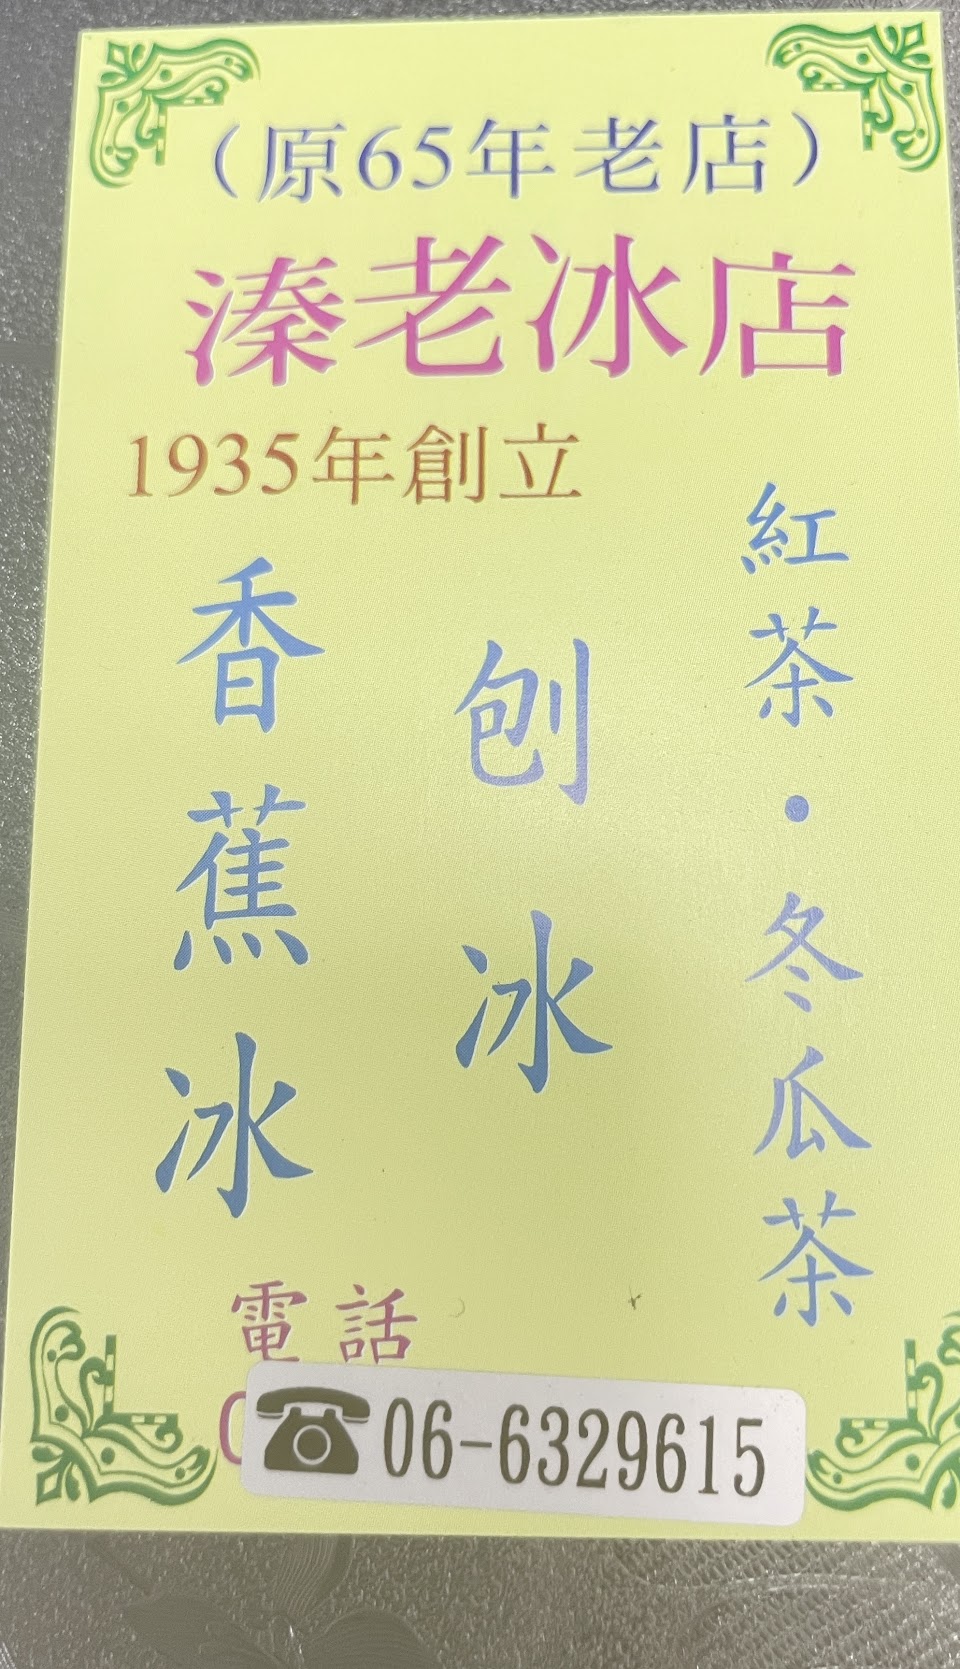 （原65年老店）
溱老冰店
1935年創立
紅茶・冬瓜茶
刨冰
香蕉冰
電話
06-6329615